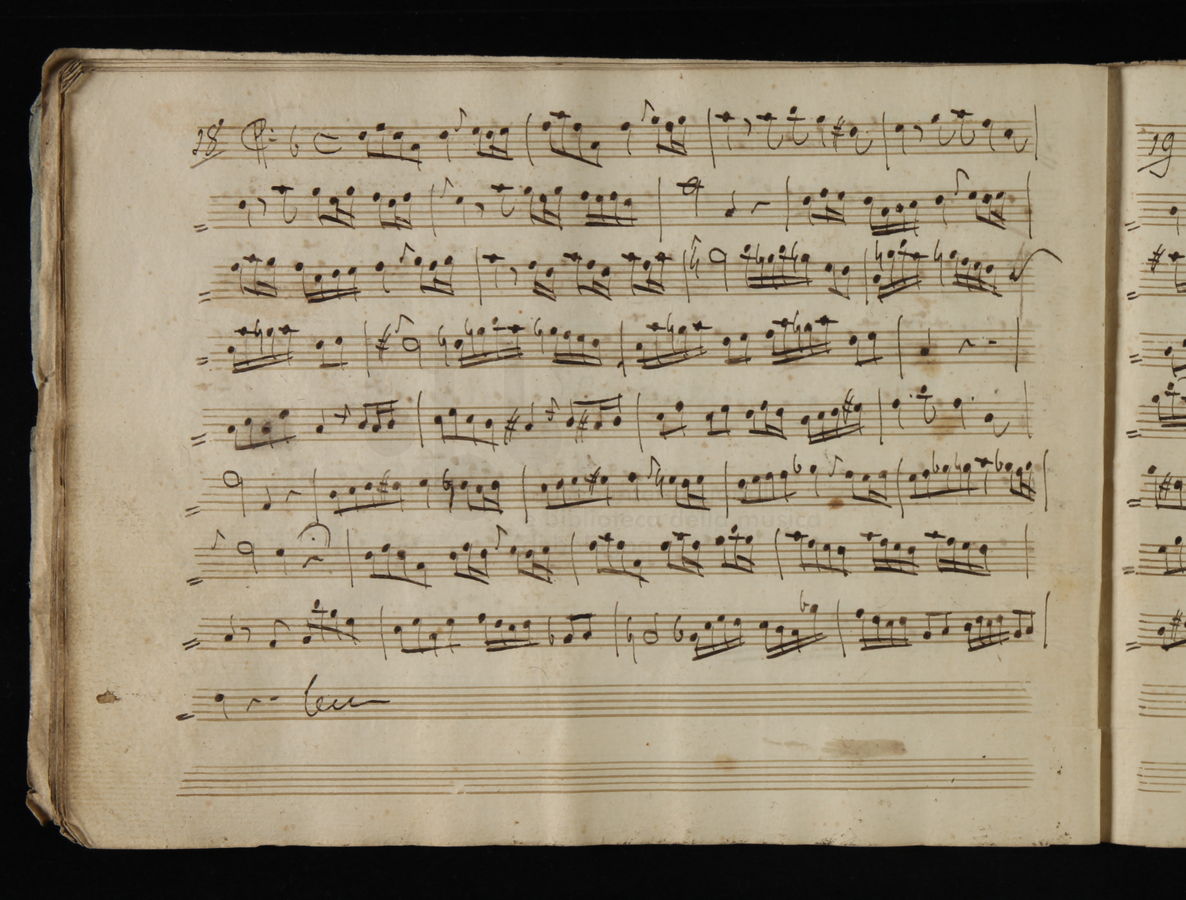 18
19
biblioteca della musica